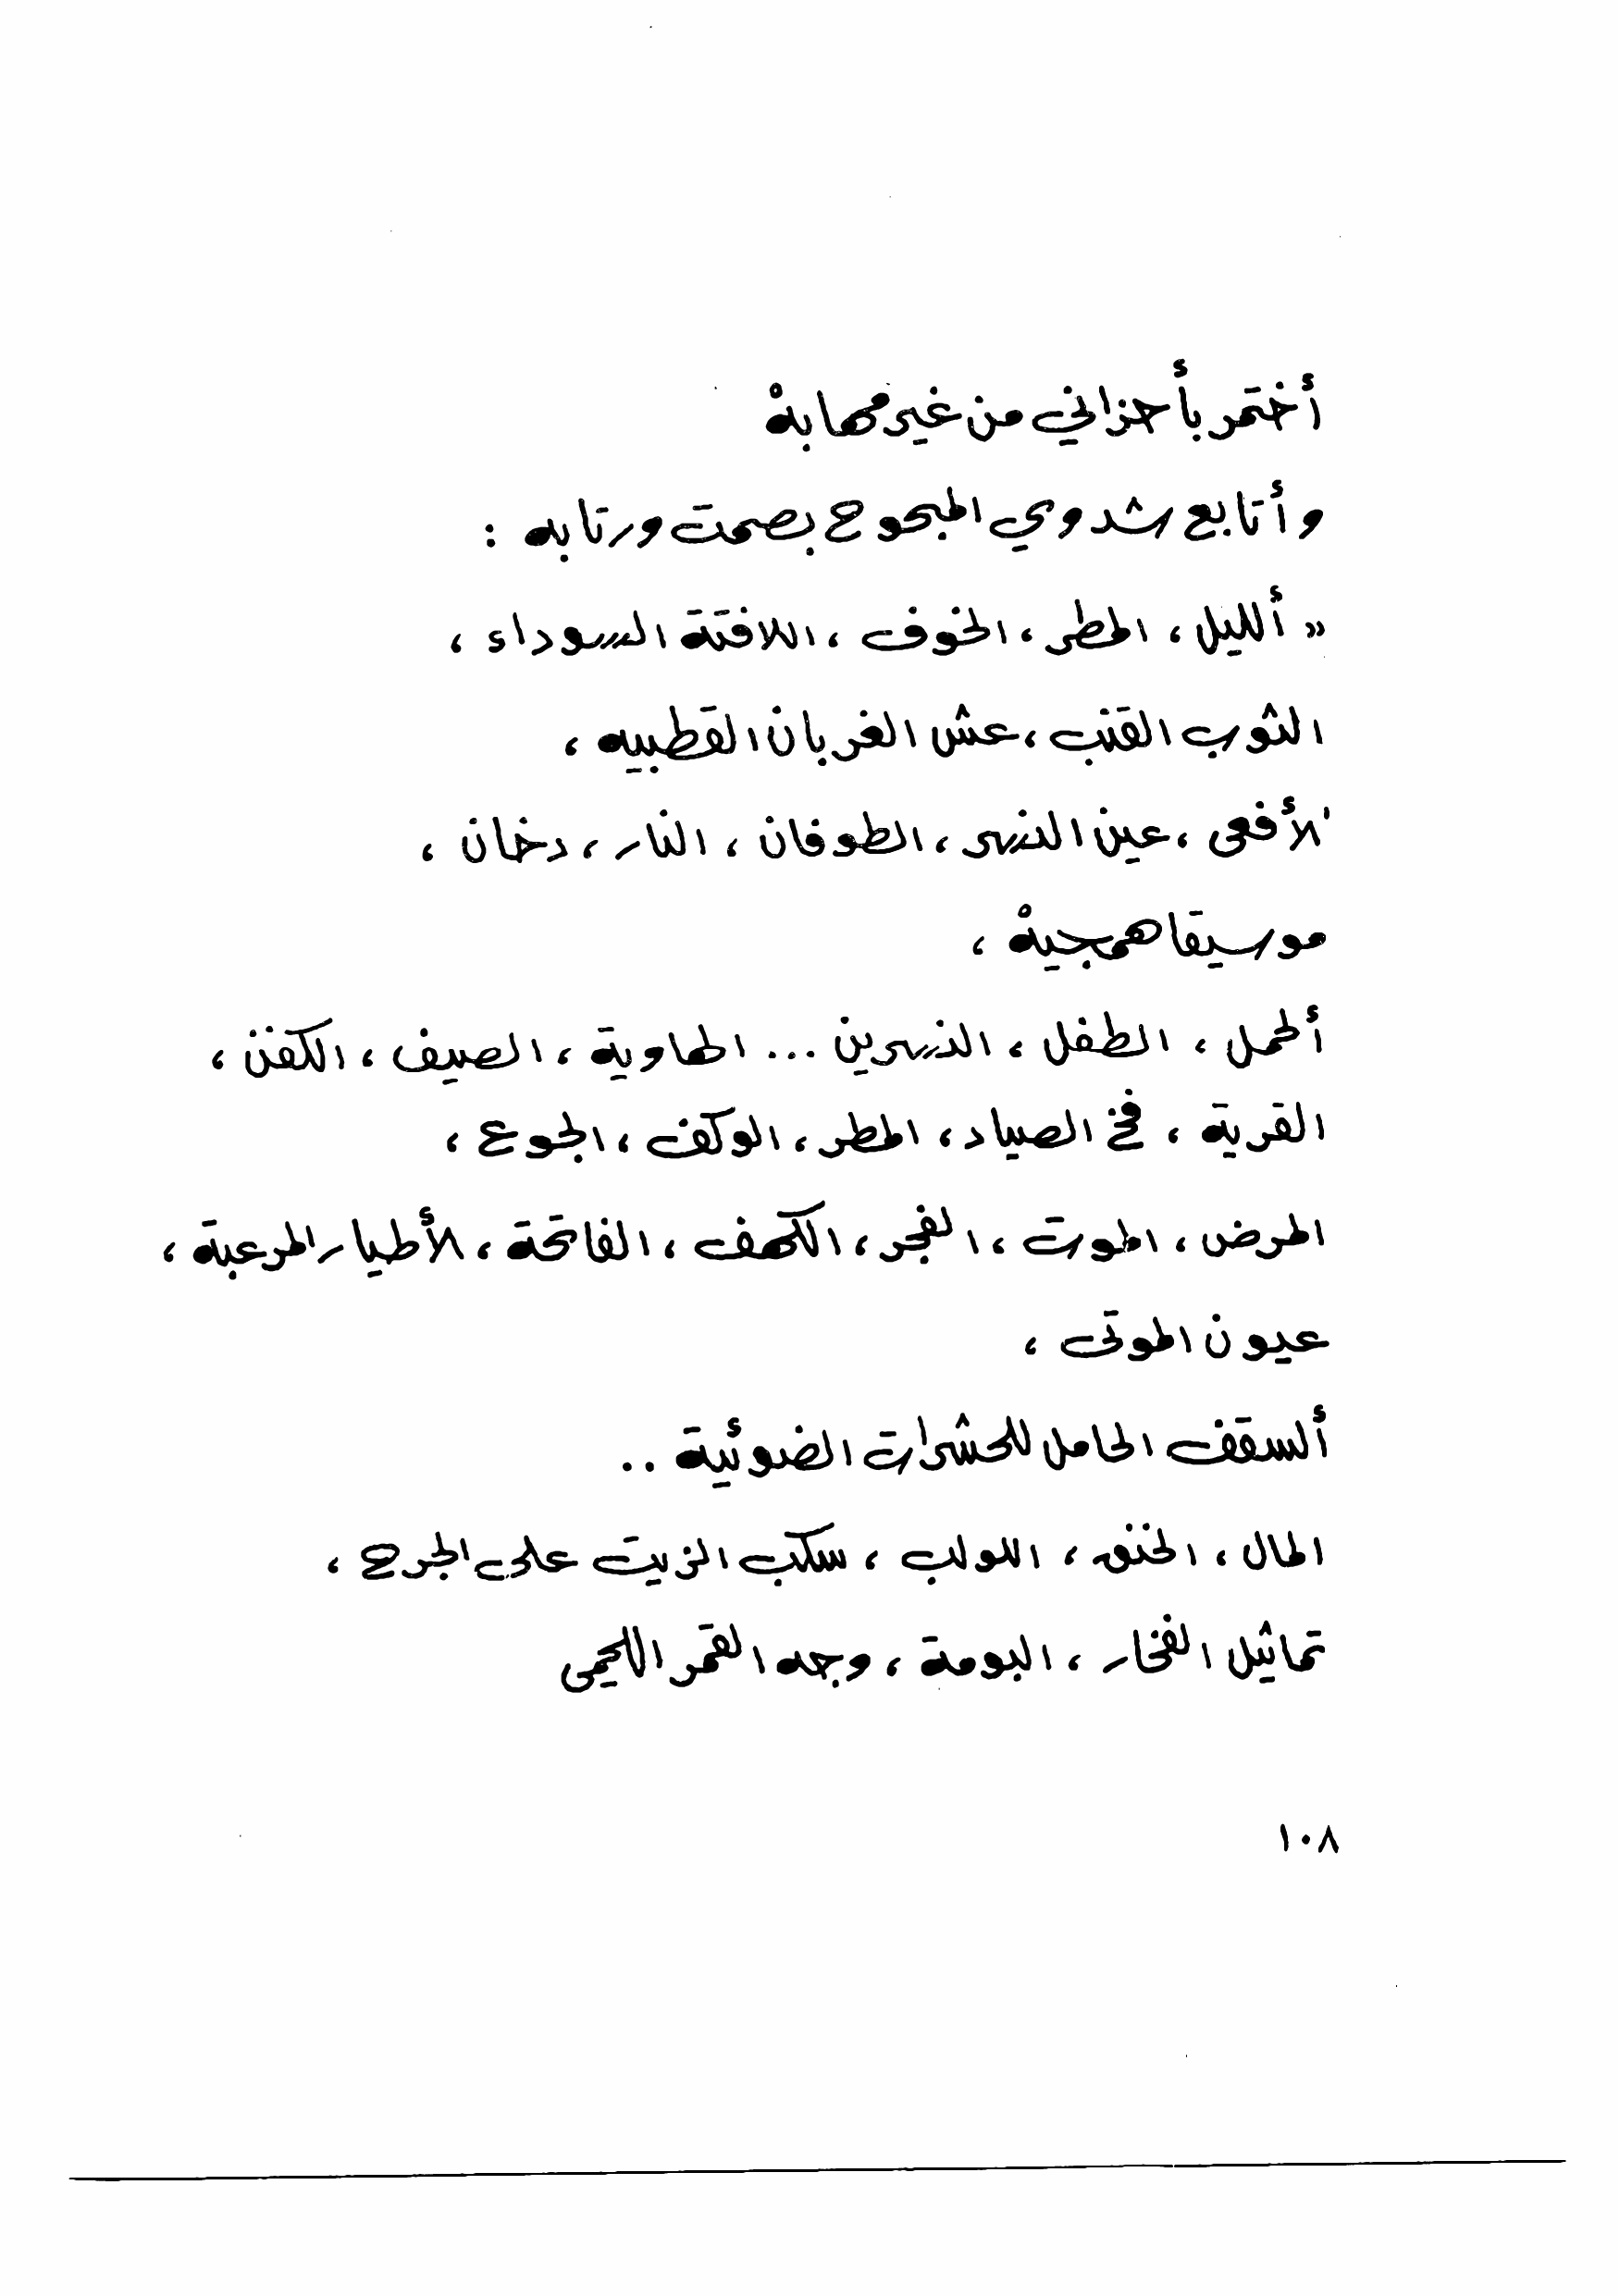 أختمر بأحزاني من غير مهابهْ
وأتابع شدوي المبحوح بصمت ورتابه :
« ألليل ، المطر ، الخوف ، اللافتة السوداء ،
الثوب القنب ، عش الغربان القطبيه ،
الأفعى ، عين النسر ، الطوفان ، النار ، دخان ،
موسيقا همجيهْ ،
ألحمل ، الطفل ، النسرين ... الهاوية ، الصيف ، الكفن ،
القرية ، فخ الصياد ، المطر ، الوكف ، الجوع ،
المرض ، الموت ، الفجر ، الكهف ، الفاتحة ، الأطيار المرعبة ،
عيون الموتى ،
ألسقف الحامل للحشرات الضوئية ..
المال ، الخنق ، اللولب ، سكب الزيت على الجرح ،
تماثيل الفخار ، البومة ، وجه القمر اللحمي
١٠٨